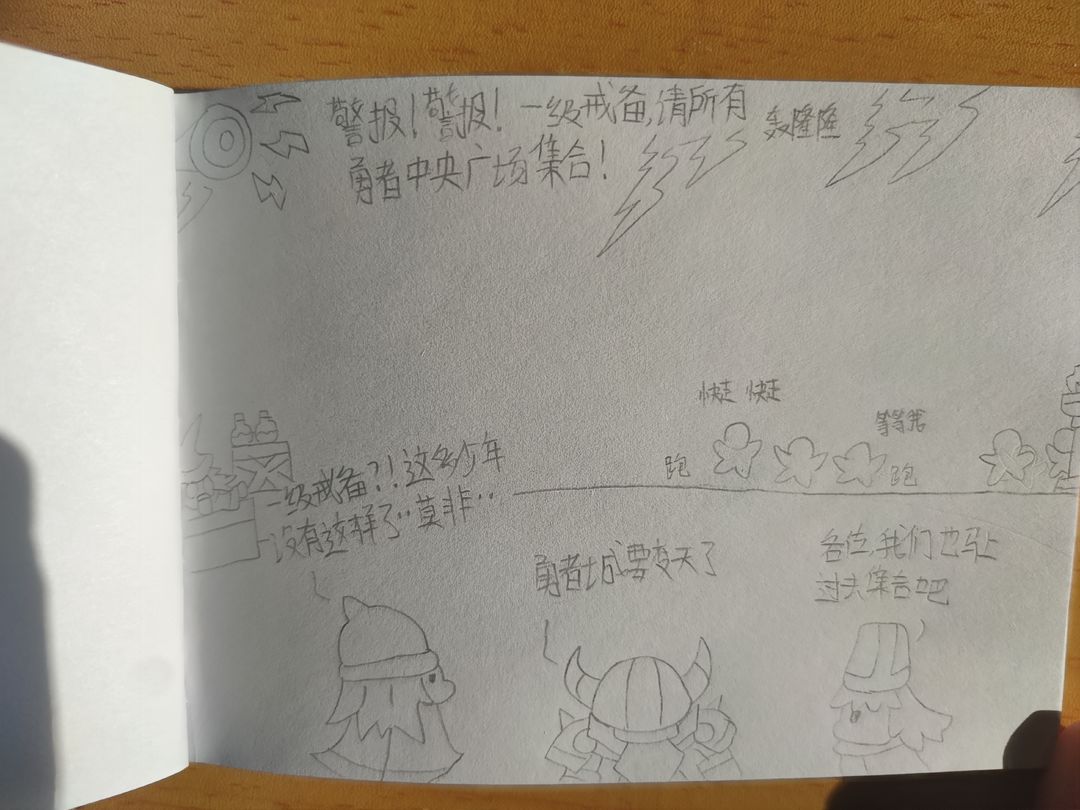 警报！警报！一级戒备,请所有
勇者中央广场集合！
轰隆隆
快走 快走
等等我
跑
跑
一级戒备?！这多少年
没有这样了··莫非··
勇者城要变天了
各位,我们也马上
过去集合吧